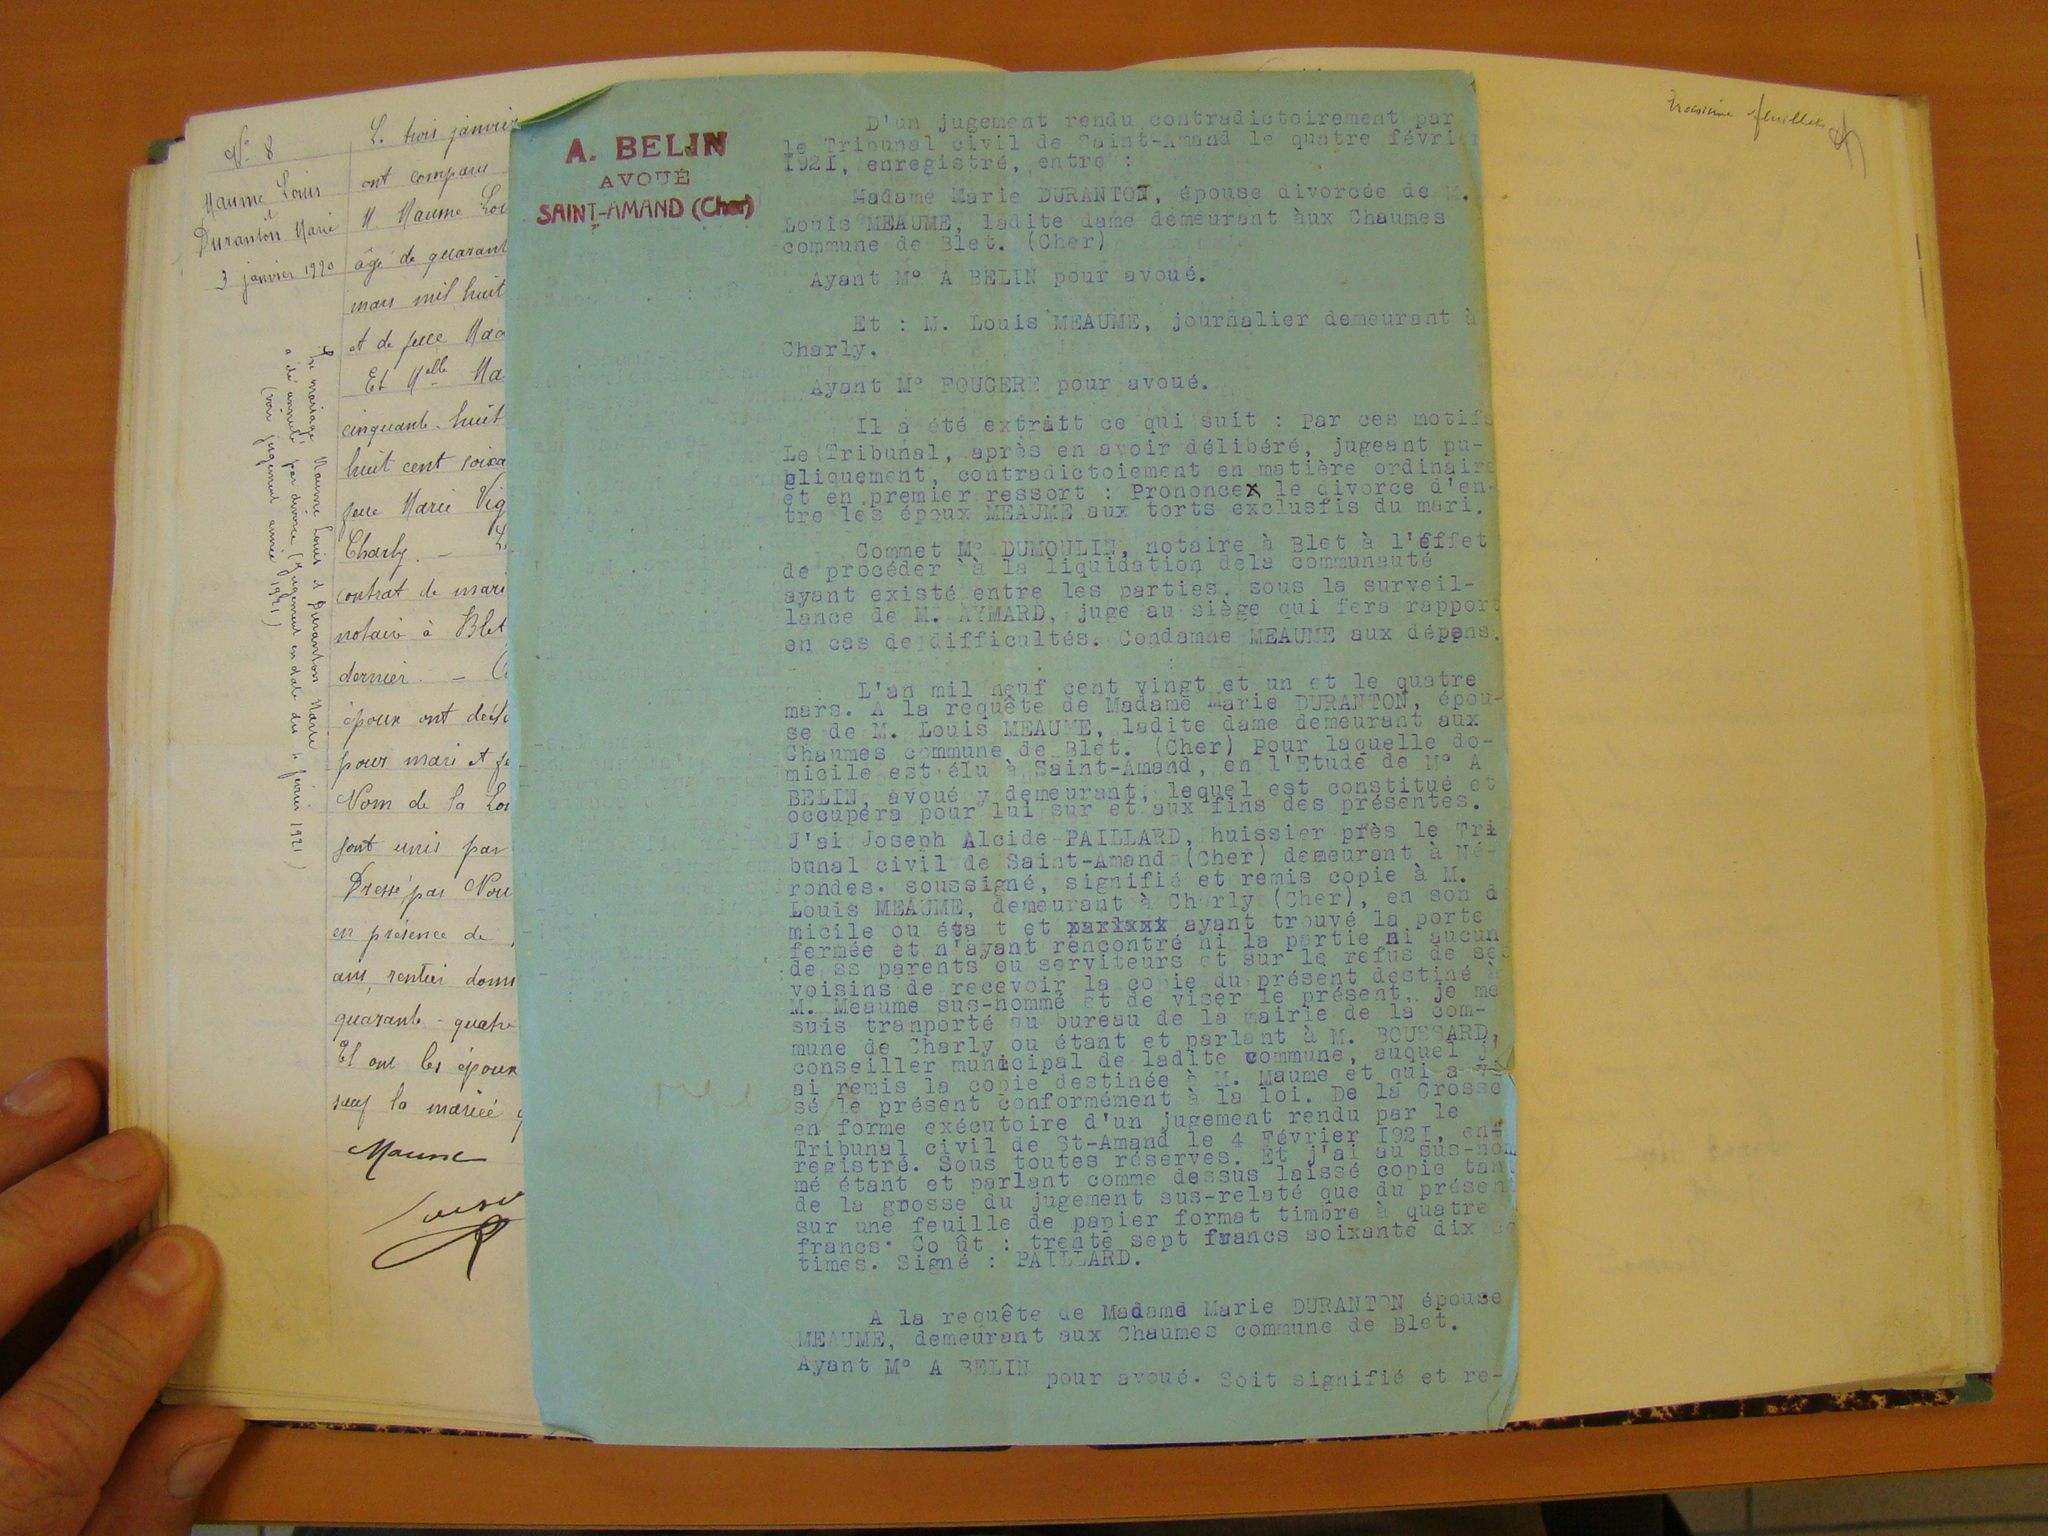 N° 8
Maume Louis
et
Duranton Marie
3 janvier 1920
Le mariage Maume Louis et Duranton Marie
a été annulé par divorce (jugement en date du 4 février 1921)
(voir jugement année 1921)
L. trois janvier
ont comparu
M. Maume Lou
âgé de quarant
mars mil huit
et de feue Mad
Et Melle Ma
cinquante-huit
huit cent soixa
feue Marie Vig
Charly. –
contrat de mari
notaire à Blet
dernier. –
époux ont décla
pour mari et fe
Nom de la Loi
sont unis par
Dressé par Nou
en présence de
ans, rentier domi
quarante-quatre
Et ont les époux
sauf la mariée q
Maume
A. BELIN
AVOUÉ
SAINT-AMAND (Cher)
D'un jugement rendu contradictoirement par
le Tribunal civil de Saint-Amand le quatre févrie
I92I, enregistré, entre :
Madame Marie DURANTON, épouse divorcée de M.
Louis MEAUME, ladite dame demeurant àux Chaumes
commune de Blet. (Cher)
Ayant M° A BELIN pour avoué.
Et : M. Louis MEAUME, journalier demeurant à
Charly.
Ayant M° FOUGERE pour avoué.
Il a été extràtt ce qui suit : Par ces motifs
Le Tribunal, après en avoir délibéré, jugeant pu-
bliquement, contradictoiement en matière ordinaire
et en premier ressort : Prononcex le divorce d'en-
tre les époux MEAUME aux torts exclusfis du mari.
Commet M° DUMOULIN, notaire à Blet à l'éffet
de procéder à la liquidation dela communauté
ayant existé entre les parties, sous la surveil-
lance de M. AYMARD, juge au siège qui fera rapport
en cas de difficultés. Condamne MEAUME aux dépens.
L'an mil neuf cent vingt et un et le quatre
mars. A la requête de Madame Marie DURANTON, épou-
se de M. Louis MEAUME, ladite dame demeurant aux
Chaumes commune de Blet. (Cher) pour laquelle do-
micile est élu à Saint-Amand, en l'Etude de M° A
BELIN, avoué y demeurant, lequel est constitué et
occupera pour lui sur et aux fins des présentes.
J'ai Joseph Alcide PAILLARD, huissier près le Tri
bunal civil de Saint-Amand (Cher) demeurant à Né-
rondes. soussigné, signifié et remis copie à M.
Louis MEAUME, demeurant à Charly (Cher), en son d
micile ou éta t et xarlxxx ayant trouvé la porte
fermée et n'ayant rencontré ni la partie ni aucun
de ss parents ou serviteurs et sur le refus de ses
voisins de recevoir la copie du présent destiné à
M. Meaume sus-nommé et de viser le présent, je me
suis tranporté au bureau de la mairie de la com-
mune de Charly ou étant et parlant à M. BOUSSARD,
conseiller municipal de ladite commune, auquel j'
ai remis la copie destinée à M. Maume et qui a vi
sé le présent conformément à la loi. De la Grosse
en forme exécutoire d'un jugement rendu par le
Tribunal civil de St-Amand le 4 Février I92I, en-
registré. Sous toutes réserves. Et j'ai au sus-nom
mé étant et parlant comme dessus laissé copie tant
de la grosse du jugement sus-relaté que du présent
sur une feuille de papier format timbre à quatre
francs. Co ût : trente sept francs soixante dix c
times. Signé : PAILLARD.
A la requête de Madame Marie DURANTON épouse
MEAUME, demeurant aux Chaumes commune de Blet.
Ayant M° A BELIN pour avoué. Soit signifié et re-
Troisième feuillet